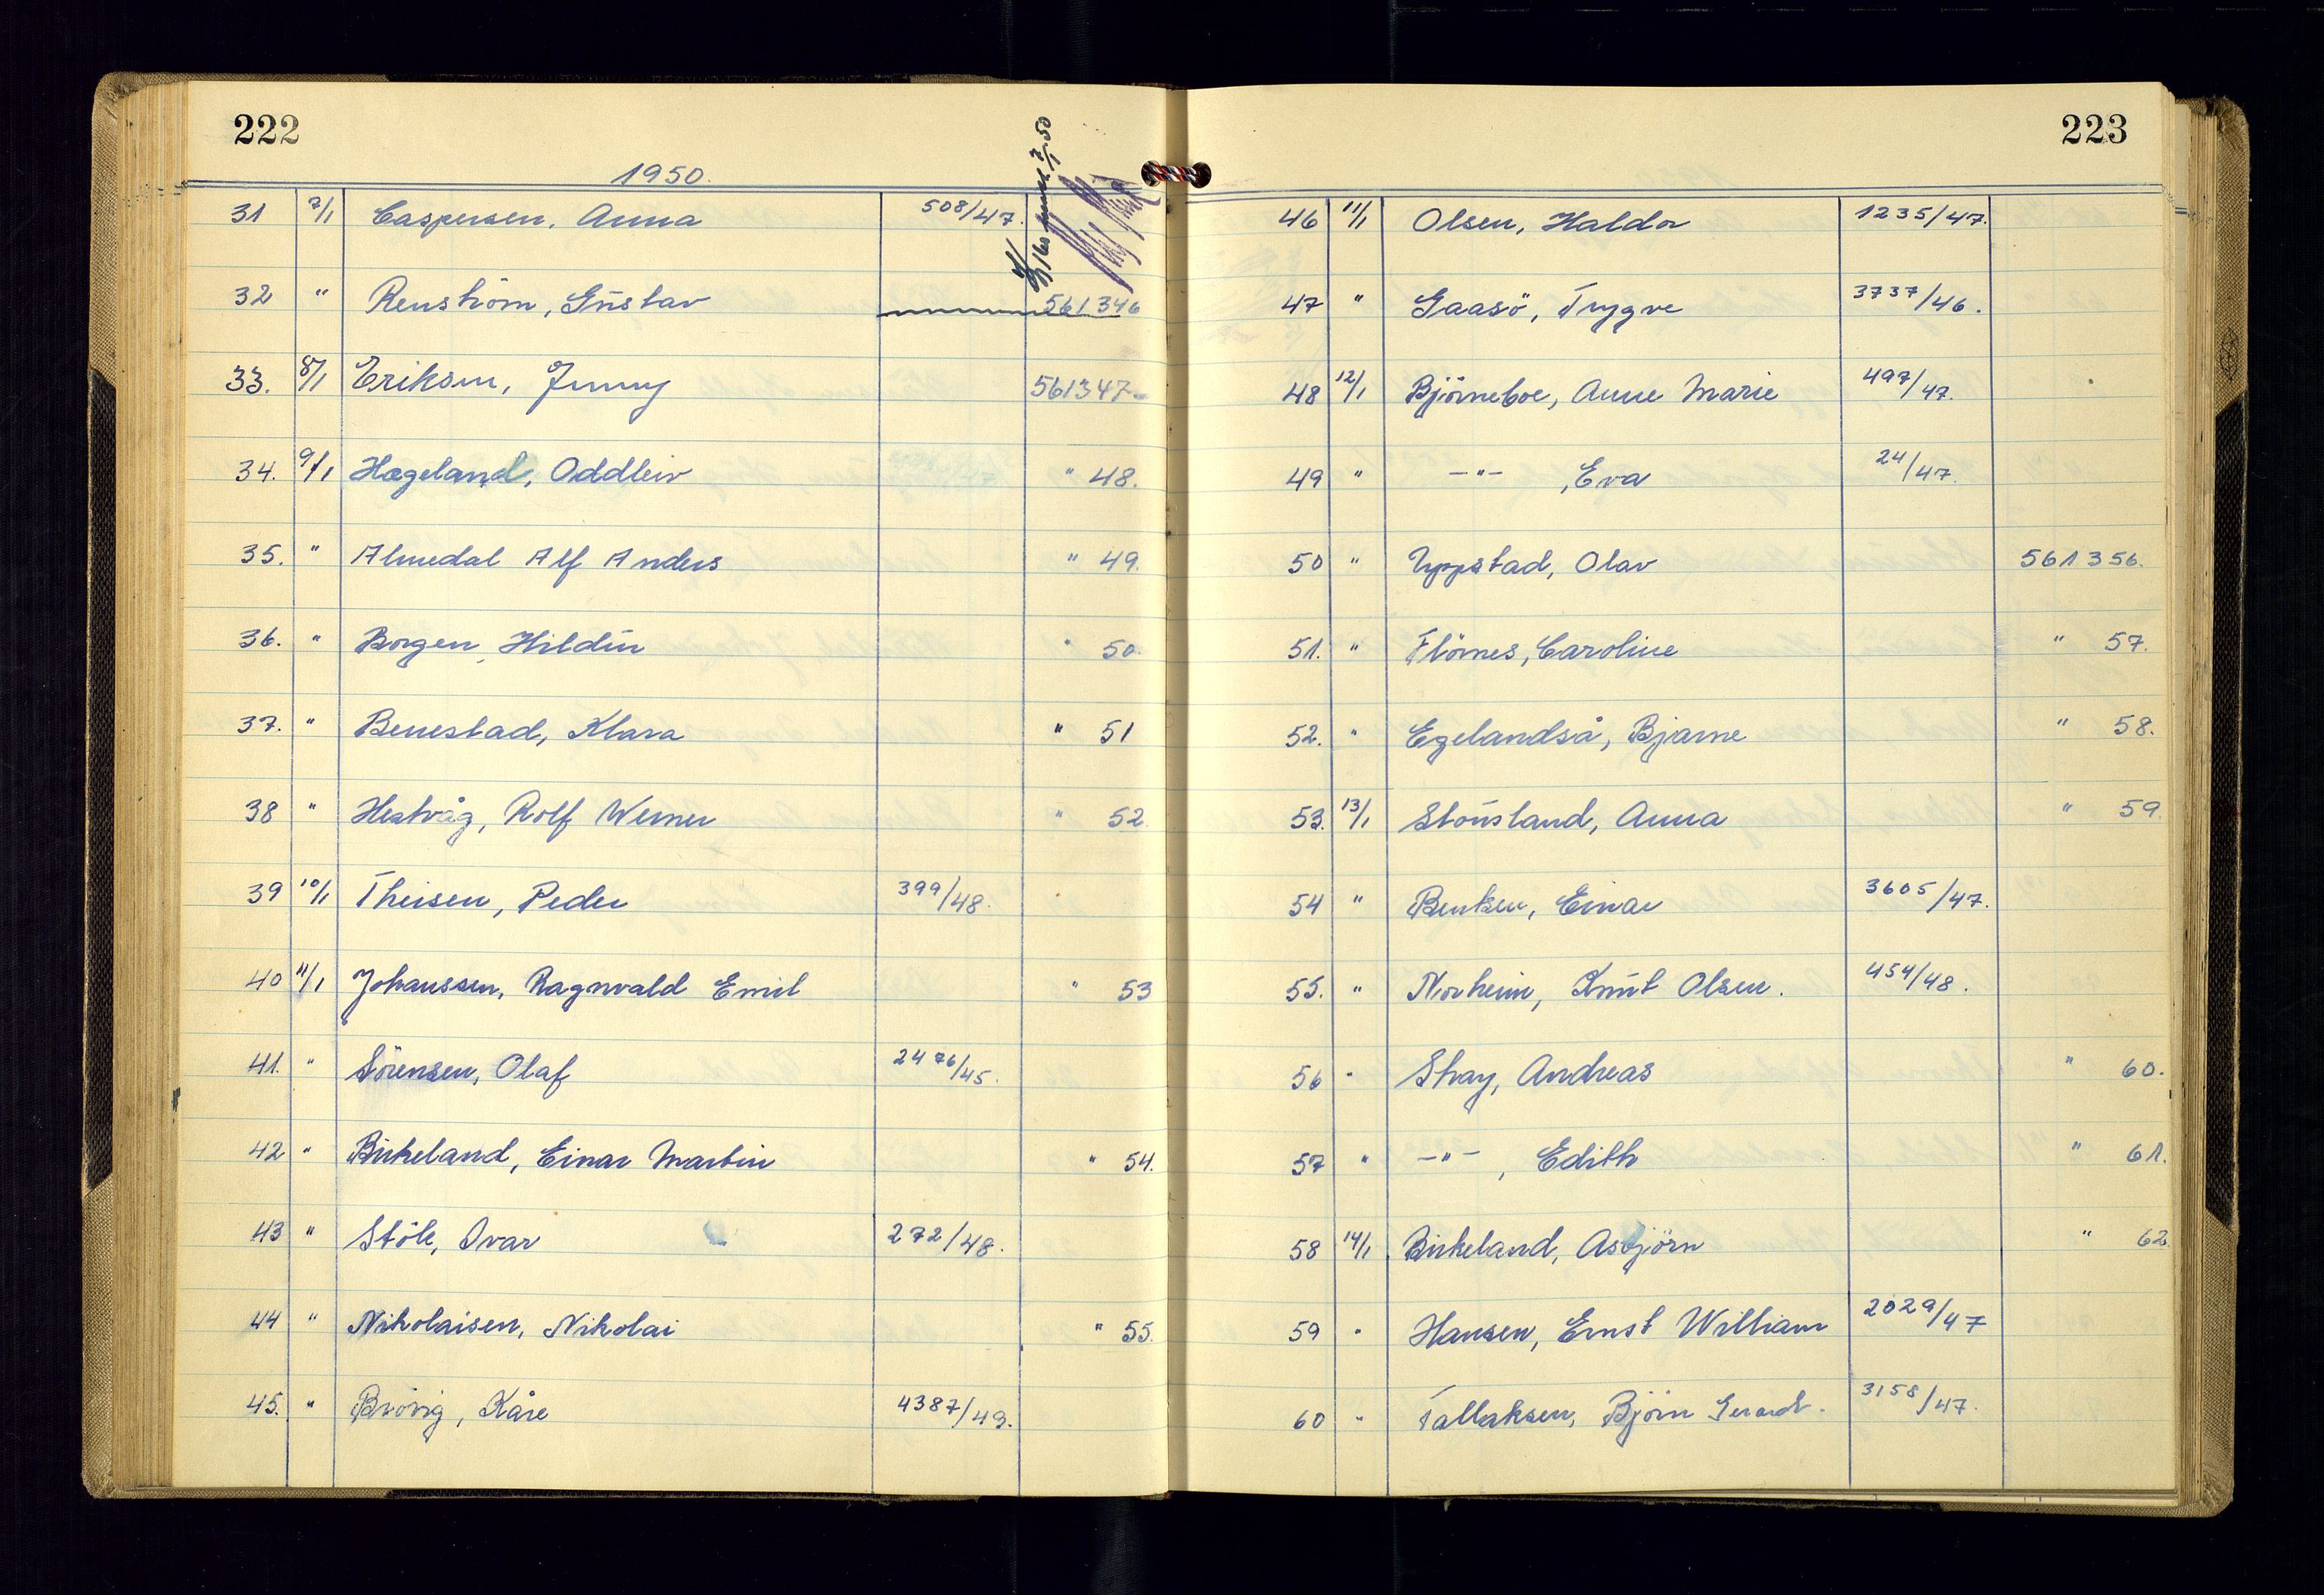 222
1950.
31 7/1 Caspersen, Anna 508/47.
32 " Renström, Gustav 561346
33. 8/1 Eriksen, Jenny 561347
34. 9/1 Hægeland, Oddleiv " 48.
35. " Almedal Alf Anders " 49.
36. " Borgen, Hildur " 50.
37. " Benestad, Klara " 51
38 " Hestvåg, Rolf Werner " 52
39 10/1 Theisen, Peder 399/48.
40 11/1 Johanssen, Ragnvald Emil " 53
41. " Sörensen, Olaf 2476/45.
42 " Birkeland, Einar Martin " 54.
43 " Stöle, Ivar 272/48.
44 " Nikolaisen, Nikolai " 55.
45. " Brövig, Kåre 4387/49.
223
46 11/1 Olsen, Haldor 1235/47.
47 " Gaasö, Trygve 3737/46.
48 12/1 Björneboe, Anne Marie 497/47.
49 " —"— , Eva 24/47.
50 " Uppstad, Olav 561356.
51. " Flörnes, Caroline " 57.
52. " Egelandså, Bjarne " 58.
53. 13/1 Stousland, Anna " 59.
54 " Bentsen, Einar 3605/47.
55. " Norheim, Knut Olsen. 454/48.
56 " Stray, Andreas " 60.
57 " —"— , Edith " 61.
58 14/1 Birkeland, Asbjörn " 62
59 " Hansen, Ernst William 2029/47
60 " Tallaksen, Björn Gerardt. 3158/47.